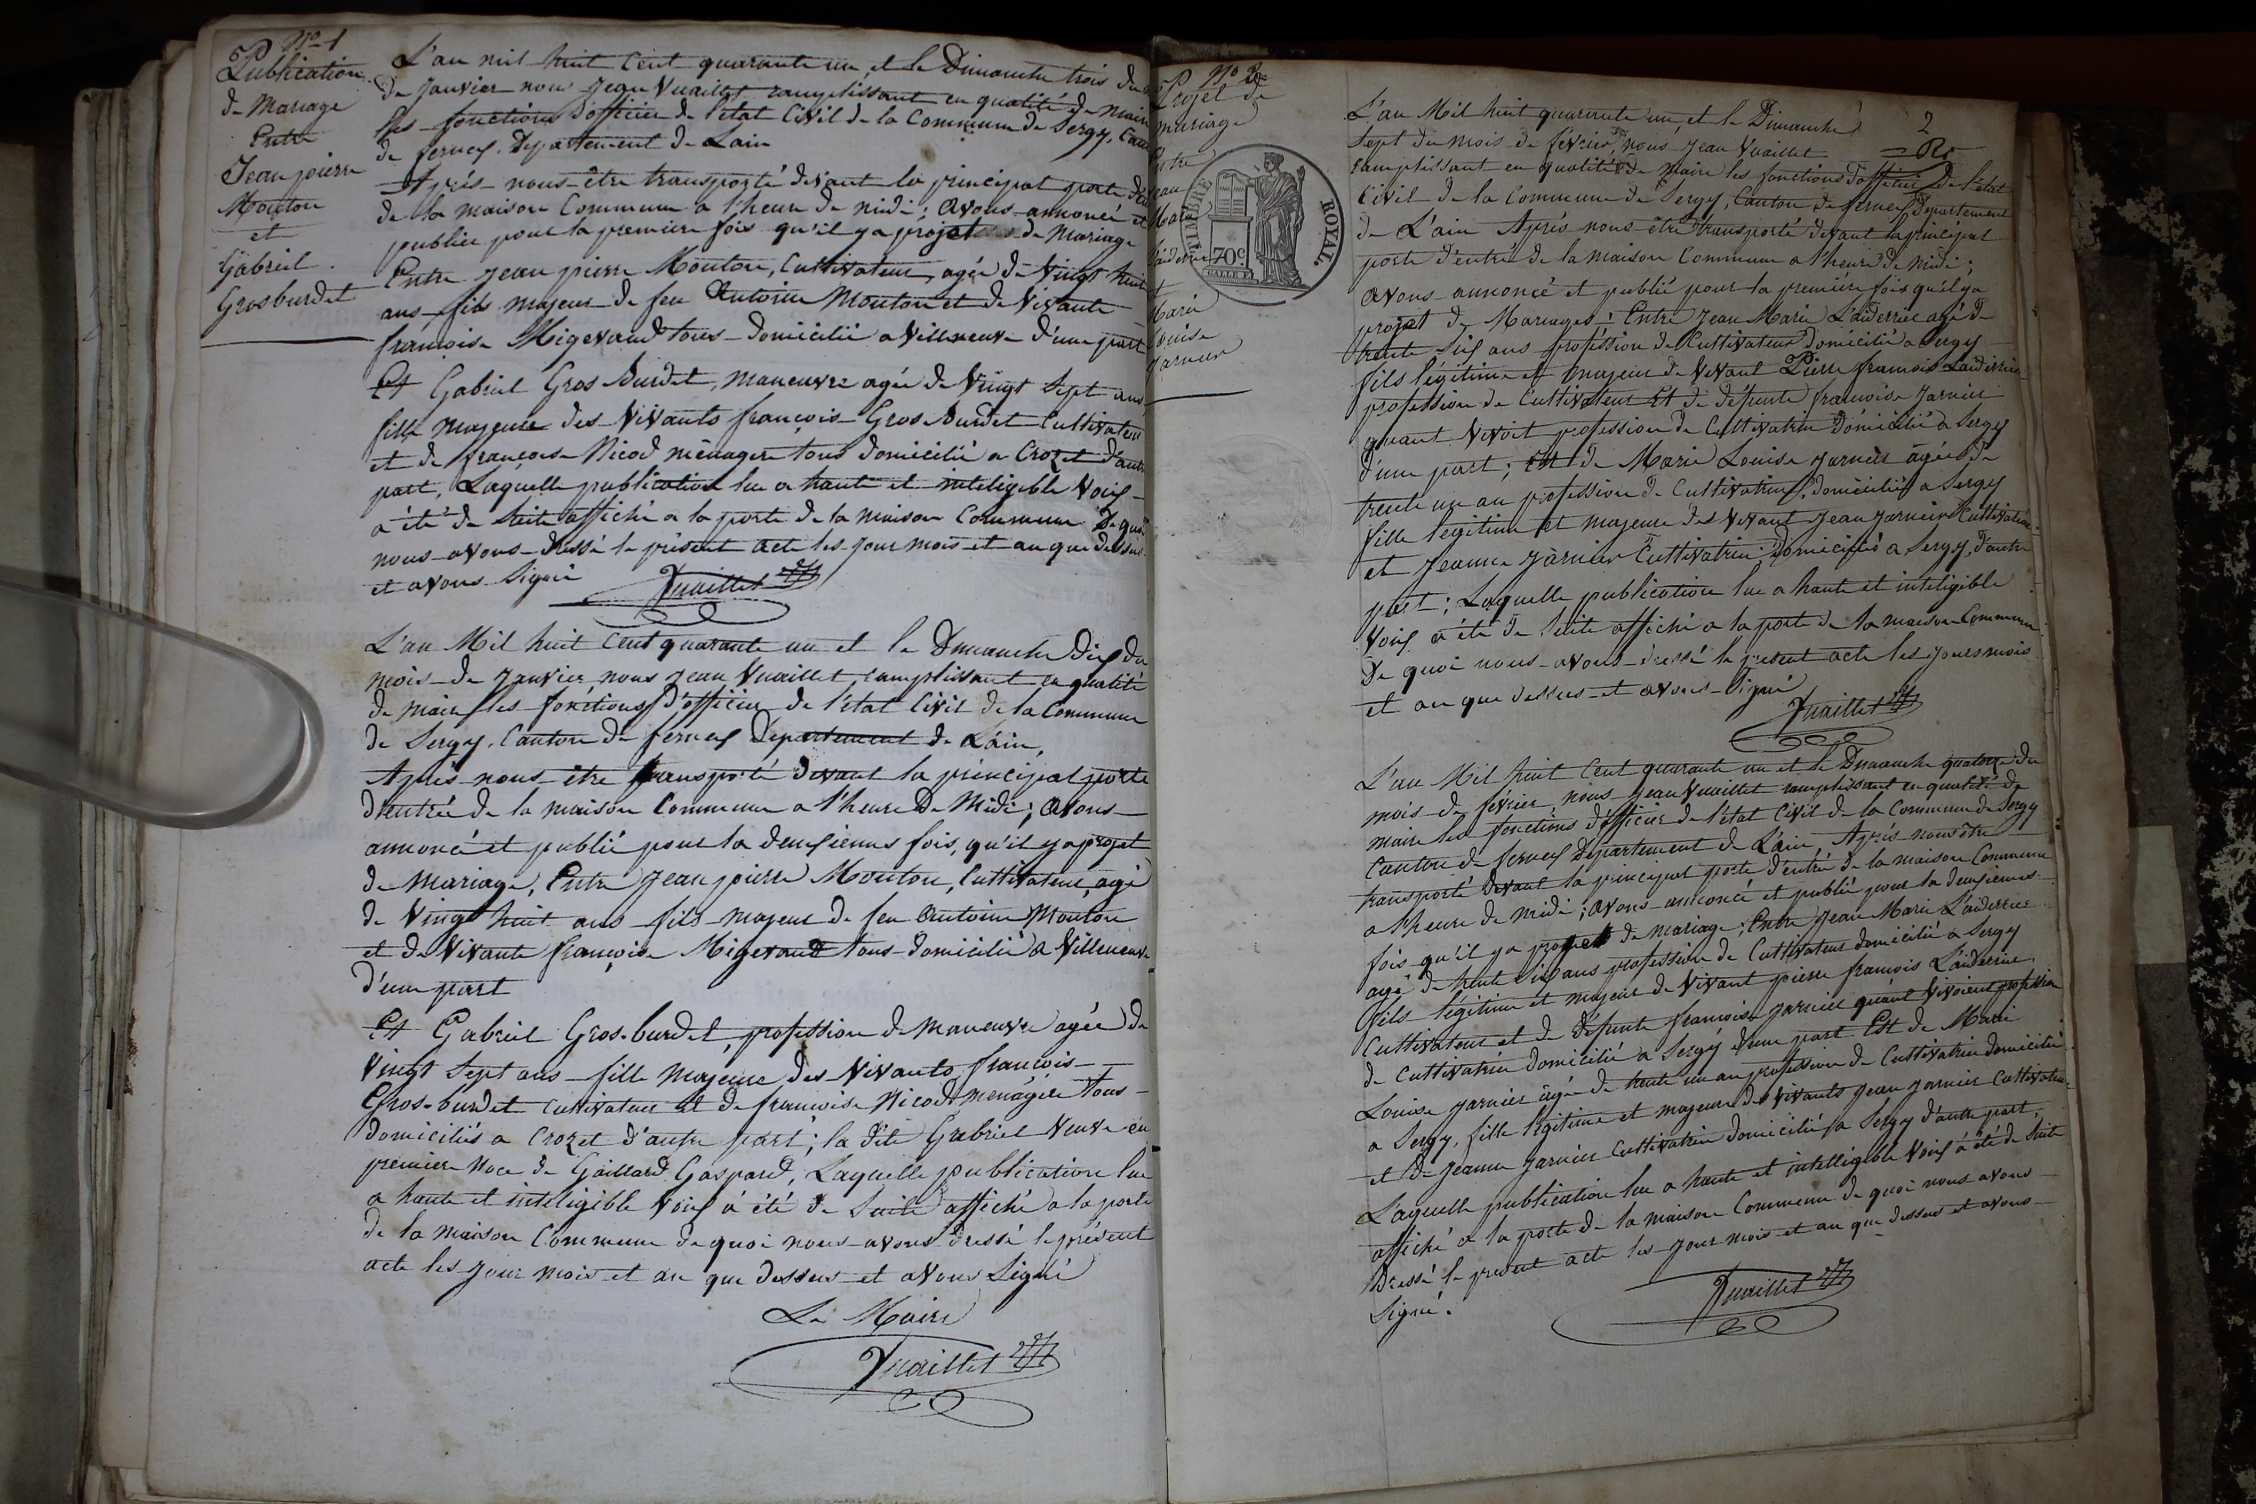 No 1
Publication
de Mariage
Entre
Jean pierre
Mouton
et
Gabriel
Grosburdet
L'an mil huit Cent quarante un et le Dimanche trois du
de Janvier nous Jean Vuaillet ramplissant en qualité de maire
les fonctions d'officier de l'état Civil de la Commune de Sergy, Can
de ferney. Departement de Lain
Aprés nous être transporté devant la principal porte d'en
de la maison Commune a l'heure de midi; avons annoncé et
publier pour la premiere fois qu'il y a projet de Mariage
Entre Jean pierre Mouton, Cultivateur, agée de Vingt huit
ans, fils majeur de feu Antoine Mouton et de Vivante
françoise Migevand tous domicilié a Villeneuve d'une part
Et Gabriel Gros Burdet, maneuvre agée de Vingt Sept ans
fille majeure des Vivants françois Gros Burdet Cultivateur
et de françoise Nicod ménagere tous domicilié a Crozet d'autre
part, Laquelle publication lue a haute et inteligible Voix
a été de Suite affiché a la porte de la maison Commune De quoi
nous avons dressé le présent acte les jour mois et an que dessus
et avons Signé
Vuaillet
L'an Mil huit Cent quarante un et le Dimanche dix du
mois de Janvier nous Jean Vuaillet, ramplissant en qualité
de maire les fonctions d'officier de l'état Civil de la Commune
de Sergy. Canton de ferney Département de Lain,
Aprés nous être transporté devant la principal porte
d'entrée de la maison Commune a l'heure De Midi; avons
annoncé et publié pour la deuxiemes fois, qu'il y a projet
de Mariage, Entre Jean pierre Mouton, Cultivateur, agé
de Vingt huit ans fils majeur de feu Antoine Mouton
et de Vivante françoise Migevand tous domicilié a Villeneuve
d'une part
Et Gabriel Gros-burdet, profession de maneuvre agée de
Vingt Sept ans fille Majeure des Vivants, françois
Gros-burdet cultivateur et de françoise Nicod menagère tous
domiciliés a Crozet d'autre part; la dite Gabriel Veuve en
premiere Noce de Gaillard Gaspard, Laquelle publication lue
a haute et inteligible Voix a été de Suite affiché a la porte
de la maison Commune de quoi nous avons dressé le présent
acte les jour mois et an que dessus et avons Signé
Le Maire
Vuaillet
No 2
Projet de
mariage
Entre
Jean
Marie
Laiderrier
et
Marie
Louise
Jarnier
TIMBRE ROYAL.
70c
2
L'an Mil huit quarante un, et le Dimanche
Sept du mois de fevrier, nous Jean Vuaillet
ramplissant en qualité de maire les fonctions d'officier de l'état
Civil de la Commune de Sergy, Canton de ferney Departement
de L'ain Aprés nous être transporté devant la principal
porte d'entré de la maison Commune a l'heure de midi;
avons annoncé et publié pour la premiere fois qu'il y a
projet de Mariages; Entre Jean Marie Laiderrier agé de
trente Six ans profession de Cultivateur domicilié a Sergy
fils légitime et majeur de Vivant Pierre francois Laiderrier
profession de Cultivateur Et de défunte francoise Jarnier
quant Vivoit profession de Cultivatrice Domicilié a Sergy
d'une part; Et de Marie Louise Jarnier âgée de
trente un an profession de Cultivatrice, domiciliée a Sergy
fille légitime et majeure des Vivant Jean Jarnier Cultivateur
et Jeanne Jarnier Cultivatrice Domiciliés a Sergy, d'autre
part; Laquelle publication lue a haute et inteligible
Voix a été de Suite affiché a la porte de la maison Commune
De quoi nous avons dressé le present acte les jours mois
et an que dessus et avons Signé
Vuaillet
L'an Mil huit Cent quarante un et le Dimanche quatorze du
mois de février, nous Jean Vuaillet ramplissant en qualité de
maire les fonctions d'officier de l'état Civil de la Commune de Sergy
Canton de ferney Département de L'ain, Aprés nous être
transporté devant la principal porte d'entré de la maison Commune
a l'heure de midi; avons annoncé et publié pour la deuxiemes
fois qu'il y a projet de mariage; Entre Jean Marie Laiderrier
agé de trente Six ans profession de Cultivateur domicilié a Sergy
fils légitime et majeur de Vivant pierre francois Laiderrier
Cultivateur et de défunte francoise Jarnier quant Vivoient profession
de Cultivatrice domicilié a Sergy d'une part Est de Marie
Louise Jarnier agée de trente un an profession de Cultivatrice domicilié
a Sergy, fille légitime et majeure de Vivants Jean Jarnier Cultivateur
et de Jeanne Jarnier Cultivatrice domicilié a Sergy d'autre part,
L'aquelle publication lue a haute et intelligible Voix a été de Suite
affiché a la porte de la maison Commune de quoi nous avons
dressé le present acte les jour mois et an que dessus et avons
Signé.
Vuaillet